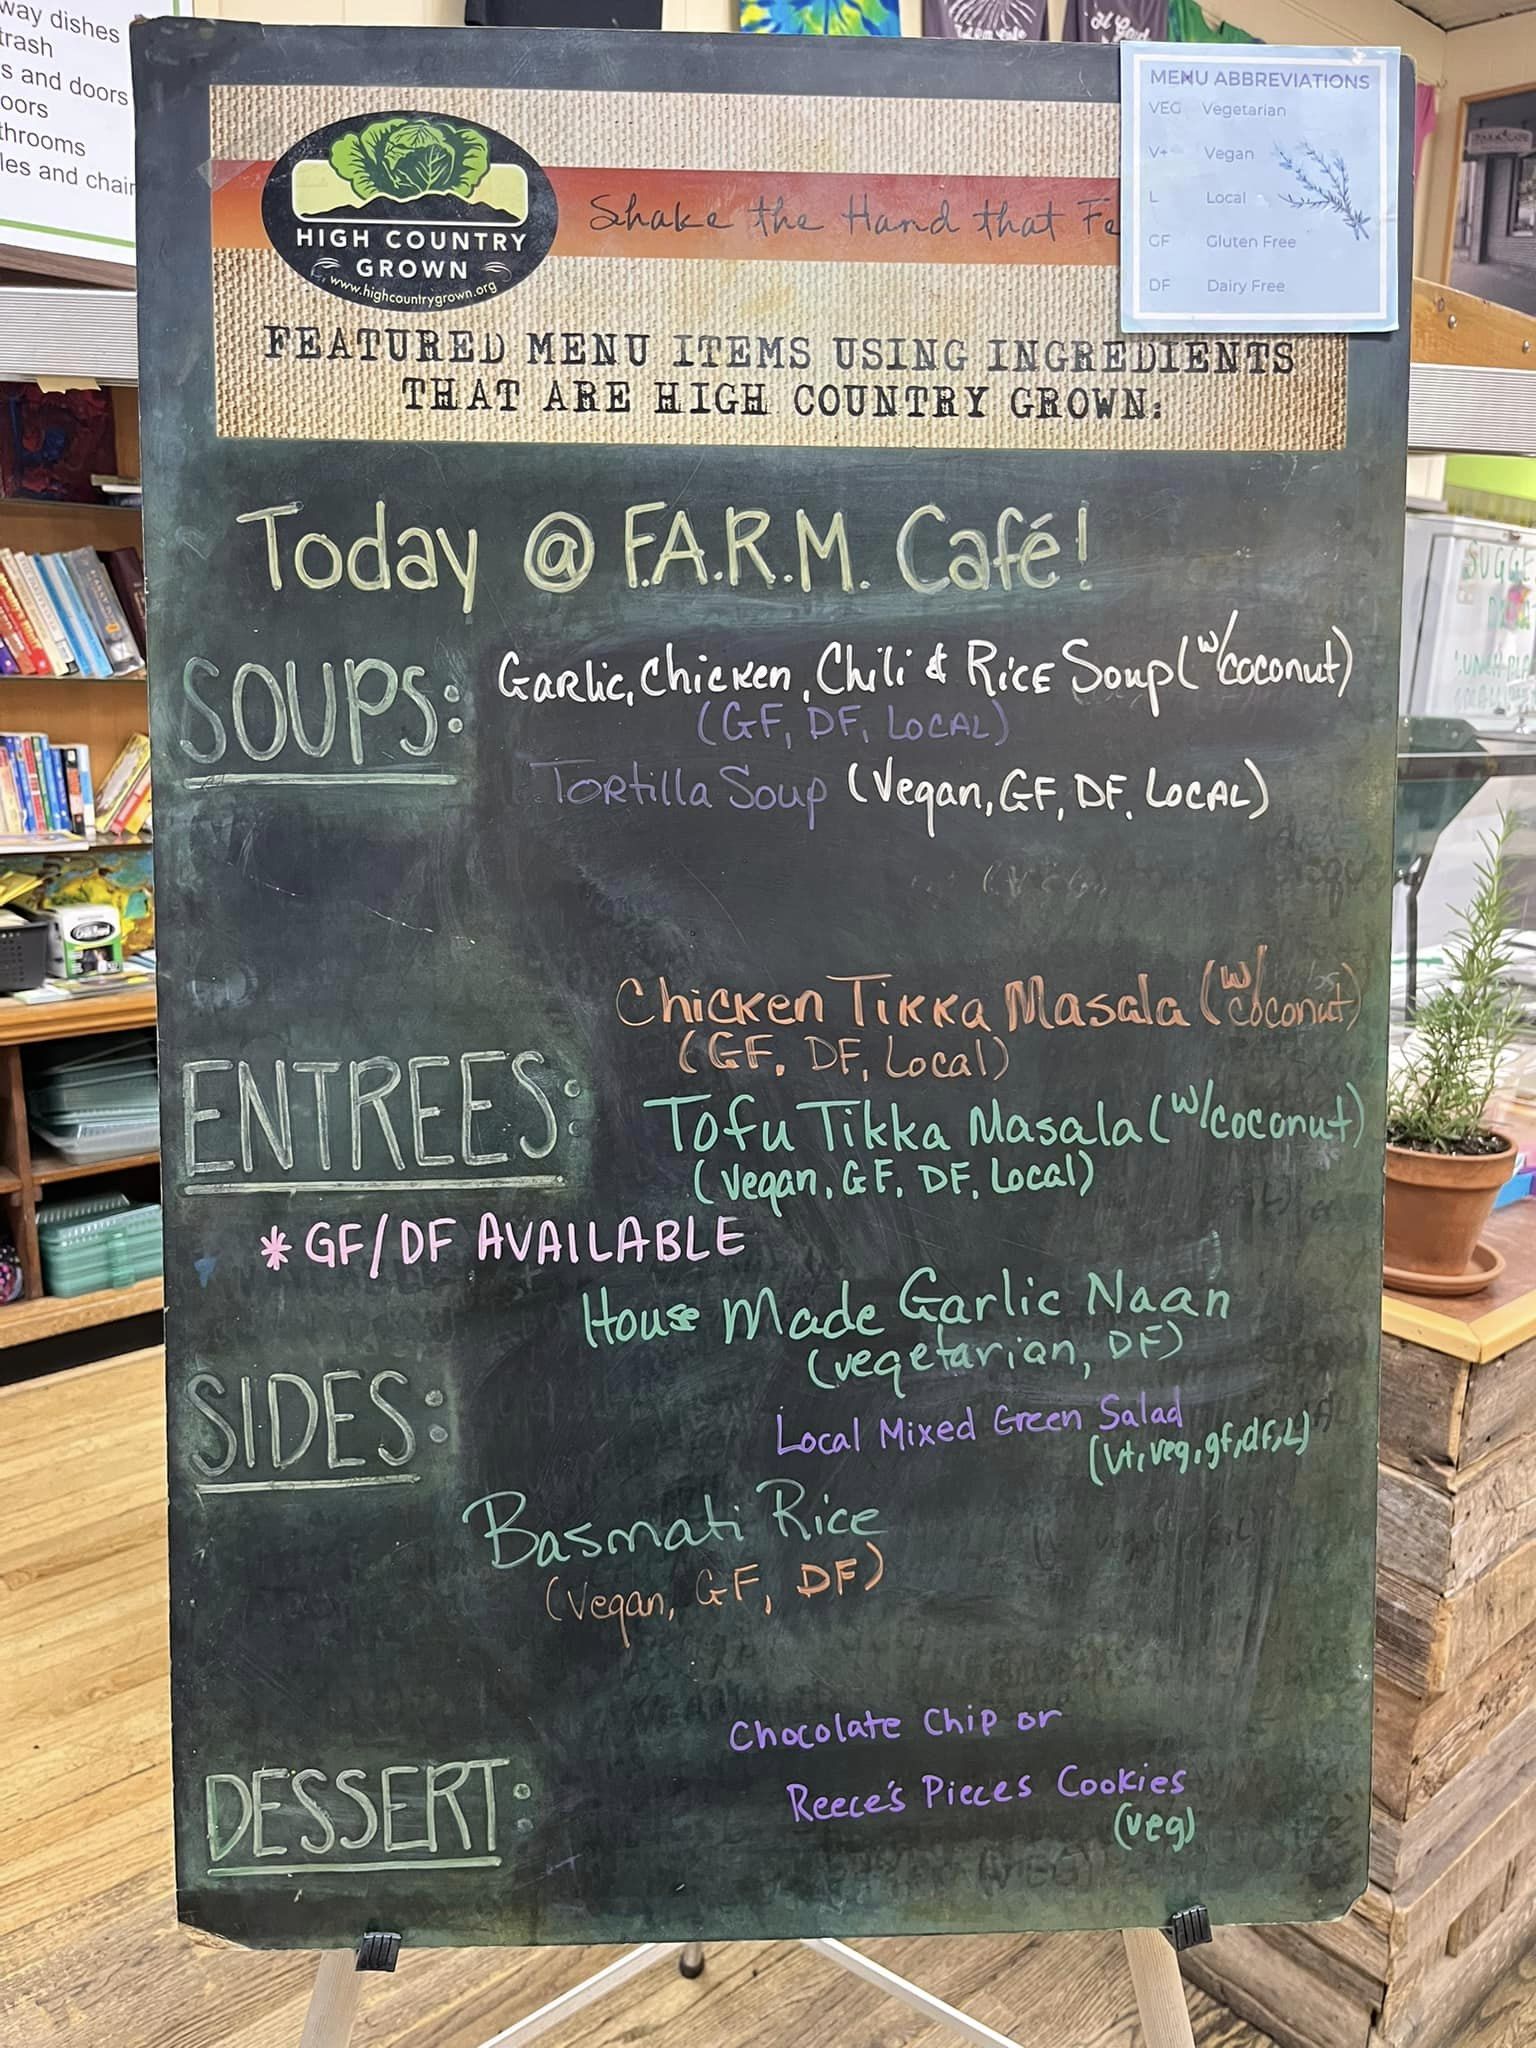 way dishes
trash
s and doors
oors
throoms
les and chair
MENU ABBREVIATIONS
VEG Vegetarian
V+ Vegan
L Local
GF Gluten Free
DF Dairy Free
HIGH COUNTRY
GROWN
www.highcountrygrown.org
Shake the Hand that Fe
FEATURED MENU ITEMS USING INGREDIENTS
THAT ARE HIGH COUNTRY GROWN:
Today @ F.A.R.M. Café!
SOUPS:
Garlic, Chicken, Chili & Rice Soup (w/ coconut)
(GF, DF, LOCAL)
Tortilla Soup (Vegan, GF, DF, LOCAL)
ENTREES:
Chicken Tikka Masala (w/ coconut)
(GF, DF, Local)
Tofu Tikka Masala (w/ coconut)
(Vegan, GF, DF, Local)
* GF/DF AVAILABLE
SIDES:
House Made Garlic Naan
(vegetarian, DF)
Local Mixed Green Salad
(V+, veg, gf, df, L)
Basmati Rice
(Vegan, GF, DF)
DESSERT:
Chocolate Chip or
Reece's Pieces Cookies
(veg)